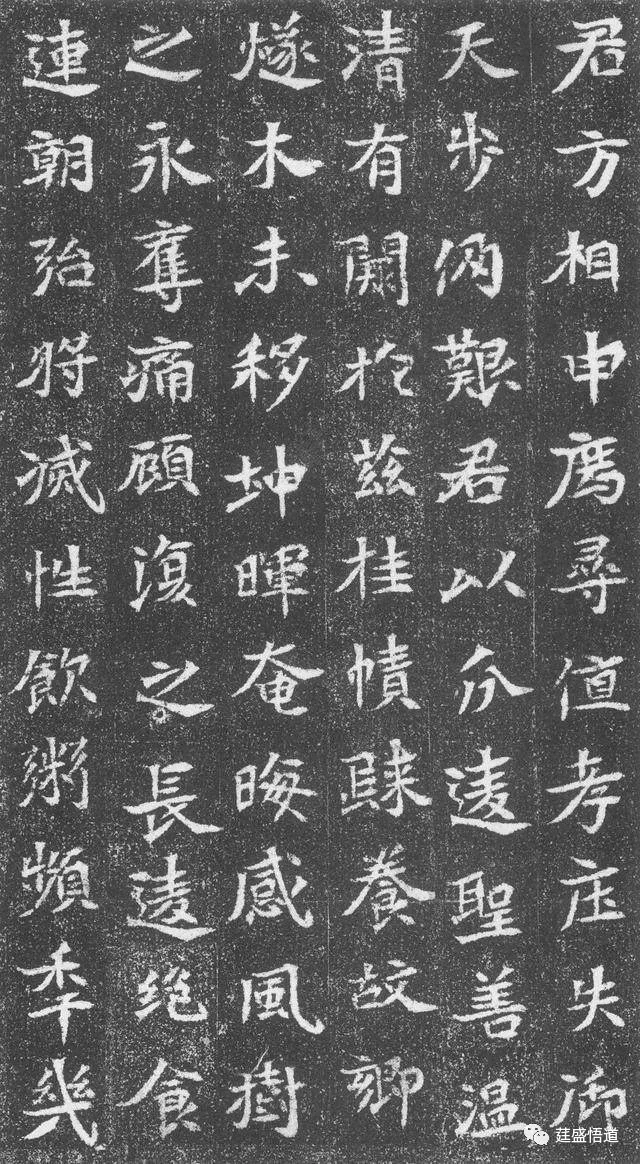 君方相申慰尋值孝庄失御
天步倆艱君以介逺聖善温
清有闕於兹桂幘踈養故鄉
燧木未移坤暉奄晦感風樹
之永奪痛顧復之長逺绝食
連朝殆將滅性飲粥頻秊幾
莛盛悟道